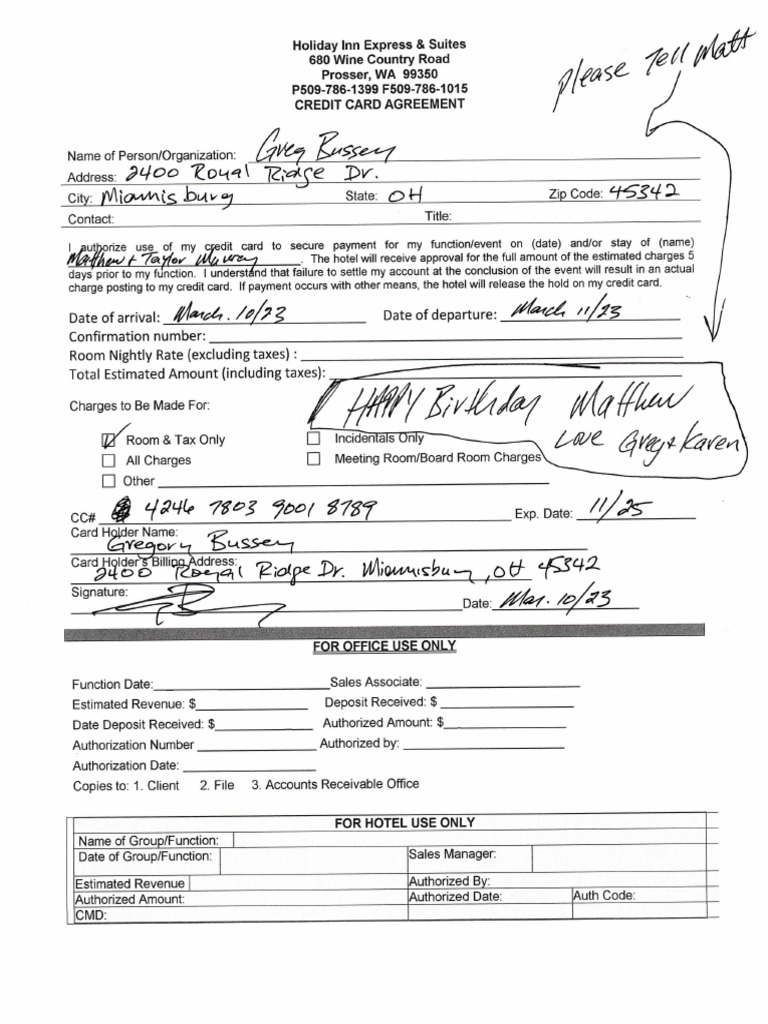 please Tell Matt
Holiday Inn Express & Suites
680 Wine Country Road
Prosser, WA 99350
P509-786-1399 F509-786-1015
CREDIT CARD AGREEMENT
Name of Person/Organization: Greg Bussey
Address: 2400 Royal Ridge Dr.
City: Miamisburg State: OH Zip Code: 45342
Contact: Title:
I authorize use of my credit card to secure payment for my function/event on (date) and/or stay of (name)
Matthew + Taylor Murray. The hotel will receive approval for the full amount of the estimated charges 5
days prior to my function. I understand that failure to settle my account at the conclusion of the event will result in an actual
charge posting to my credit card. If payment occurs with other means, the hotel will release the hold on my credit card.
Date of arrival: March. 10/23 Date of departure: March 11/23
Confirmation number:
Room Nightly Rate (excluding taxes) :
Total Estimated Amount (including taxes):
HAPPY Birthday Matthew
Love Greg + Karen
Charges to Be Made For:
Room & Tax Only Incidentals Only
All Charges Meeting Room/Board Room Charges
Other
CC# 4246 7803 9001 8789 Exp. Date: 11/25
Card Holder Name:
Gregory Bussey
Card Holder's Billing Address:
2400 Royal Ridge Dr. Miamisburg, OH 45342
Signature: Date: Mar. 10/23
FOR OFFICE USE ONLY
Function Date: Sales Associate:
Estimated Revenue: $ Deposit Received: $
Date Deposit Received: $ Authorized Amount: $
Authorization Number Authorized by:
Authorization Date:
Copies to: 1. Client 2. File 3. Accounts Receivable Office
FOR HOTEL USE ONLY
Name of Group/Function:
Date of Group/Function: Sales Manager:
Estimated Revenue Authorized By:
Authorized Amount: Authorized Date: Auth Code:
CMD: